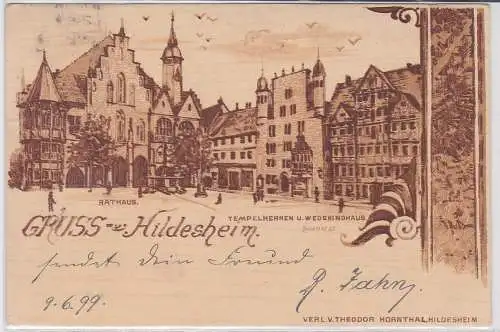 RATHAUS.
TEMPELHERREN U. WEDEKINDHAUS
GRUSS a/s Hildesheim.
sendet Dein Freund
R. Jahn
9.6.99.
VERL V. THEODOR HORNTHAL, HILDESHEIM